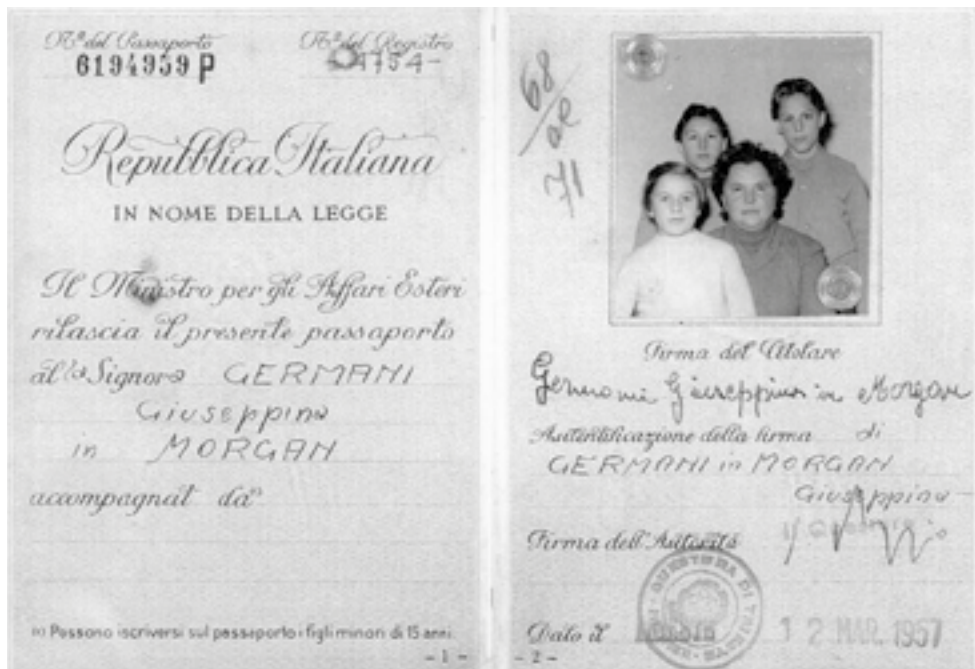 Nº del Passaporto
6194959 P
Nº del Registro
Repubblica Italiana
IN NOME DELLA LEGGE
Il Ministro per gli Affari Esteri
rilascia il presente passaporto
al la Signora GERMANI
Giuseppina
in MORGAN
accompagnat da
Possono iscriversi sul passaporto i figli minori di 15 anni.
- 1 -
68
71
Firma del titolare
Germani Giuseppina in Morgan
Autentificazione della firma di
GERMANI in MORGAN
Giuseppina
Firma dell'Autorità
QUESTURA DI
Dato il 12 MAR. 1957
- 2 -